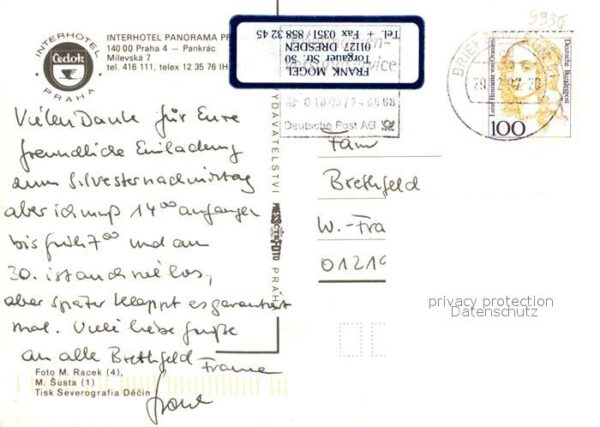 INTERHOTEL
Čedok
PRAHA
INTERHOTEL PANORAMA PR
140 00 Praha 4 — Pankrác
Milevská 7
tel. 416 111, telex 12 35 76 IH
FRANK MOGEL
Torgauer Str. 50
01127 DRESDEN
Tel + Fax 0351/858 32 45
Deutsche Post AG
BRIEF
Luise Henriette von Oranien
Deutsche Bundespost
100
9930
Vielen Dank für Eure
freundliche Einladung
zum Silvesternachmittag
aber ich muß 14 00 anfangen
bis früh 7 00 und am
30. ist auch viel los,
aber später klappt es garantiert
mal. Viele liebe Grüße
an alle Brethfeld-
Frank
Fam
Brethfeld
W.-Fra
01219
VYDAVATELSTVÍ
PRESSFOTO
PRAHA
privacy protection
Datenschutz
Foto M. Racek (4),
M. Šusta (1)
Tisk Severografia Děčín